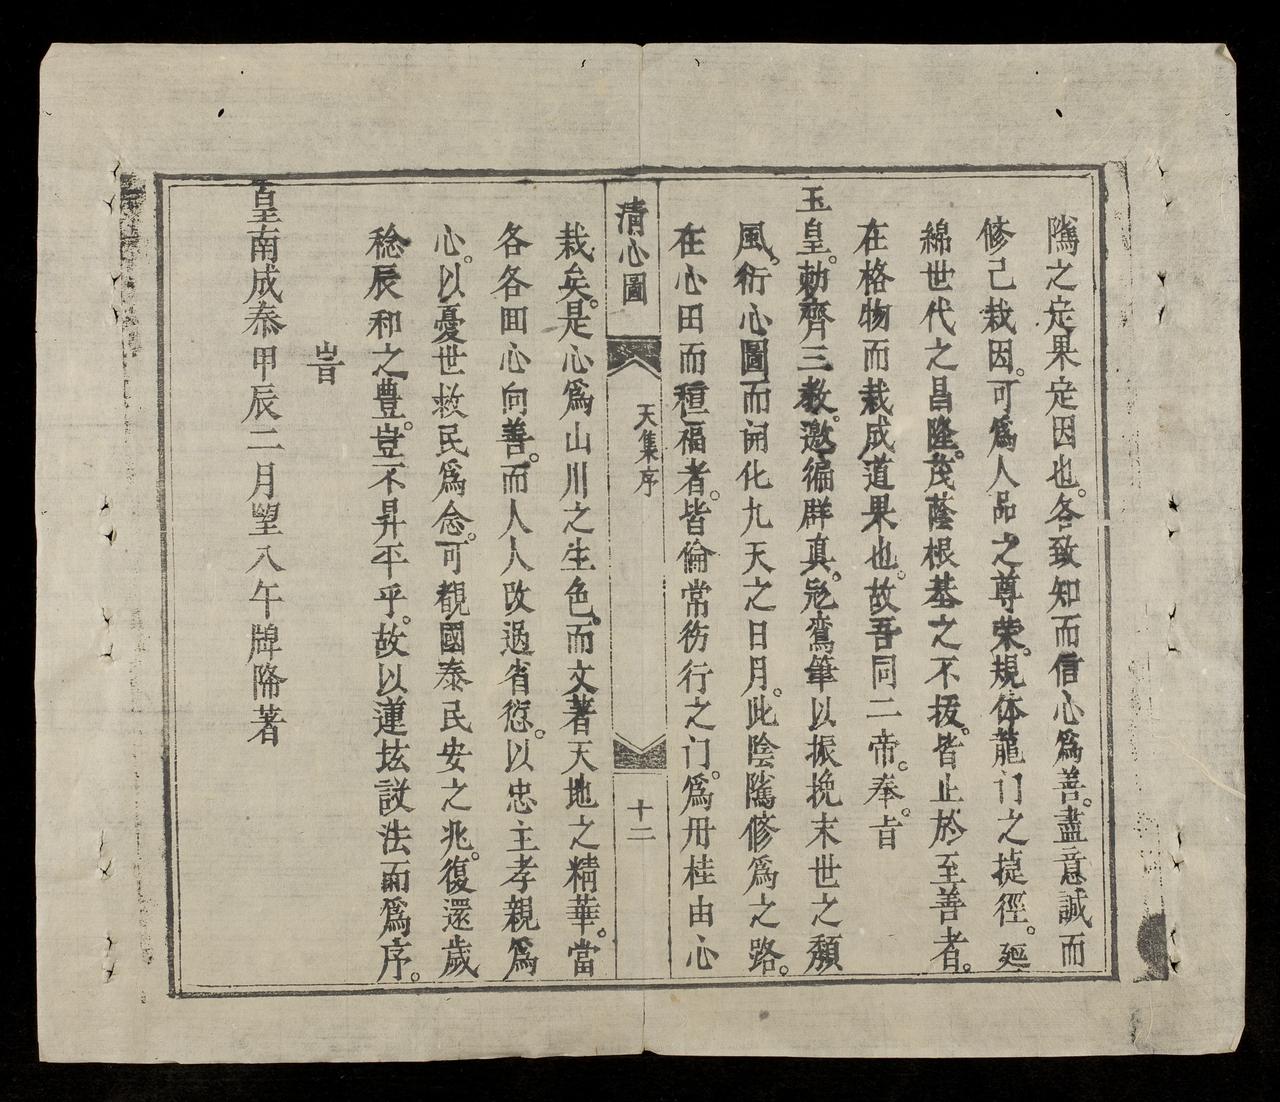 隲之定果定因也。各致知而信心爲善。盡意誠而
修己栽因。可爲人品之尊荣。規体龍门之捷徑。𢌞
綿世代之昌隆。茂蔭根基之不拔。皆止於至善者。
在格物而栽成道果也。故吾同二帝。奉。㫖
玉皇。勅齊三教。邀徧群真。迯鸞筆以振挽末世之頽
風。衍心圖而闹化九天之日月。此陰隲修爲之路。
在心田而種福者。皆倫常彷行之门。爲丹桂由心
清心圖
天集序
十二
栽矣。是心爲山川之生色。而文著天地之精華。當
各各囬心向善。而人人改過省愆。以忠主孝親爲
心。以憂世救民爲念。可觀國泰民安之兆。復還歲
稔辰和之豊。豈不昇平乎。故以蓮㧴説法而爲序。
旹
皇南成泰甲辰二月望八午牌降著